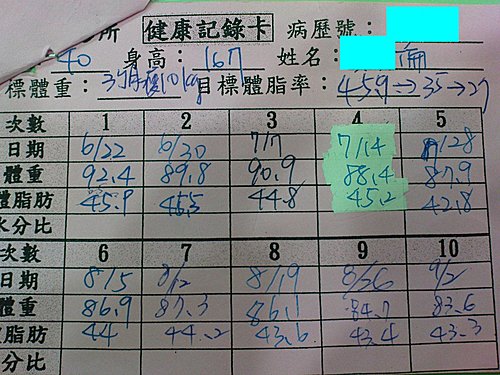 所 健康記錄卡 病歷號：
40 身高：167 姓名：
標體重：3個月瘦10kg 目標體脂率：45.9→35→27
次數 1 2 3 4 5
日期 6/22 6/30 7/7 7/14 7/28
體重 92.4 89.8 90.9 88.4 87.9
體脂肪 45.9 45.5 44.8 45.2 42.8
水分比
次數 6 7 8 9 10
日期 8/5 8/12 8/19 8/26 9/2
體重 86.9 87.3 86.1 84.7 83.6
體脂肪 44 44.2 43.6 43.4 43.3
分比